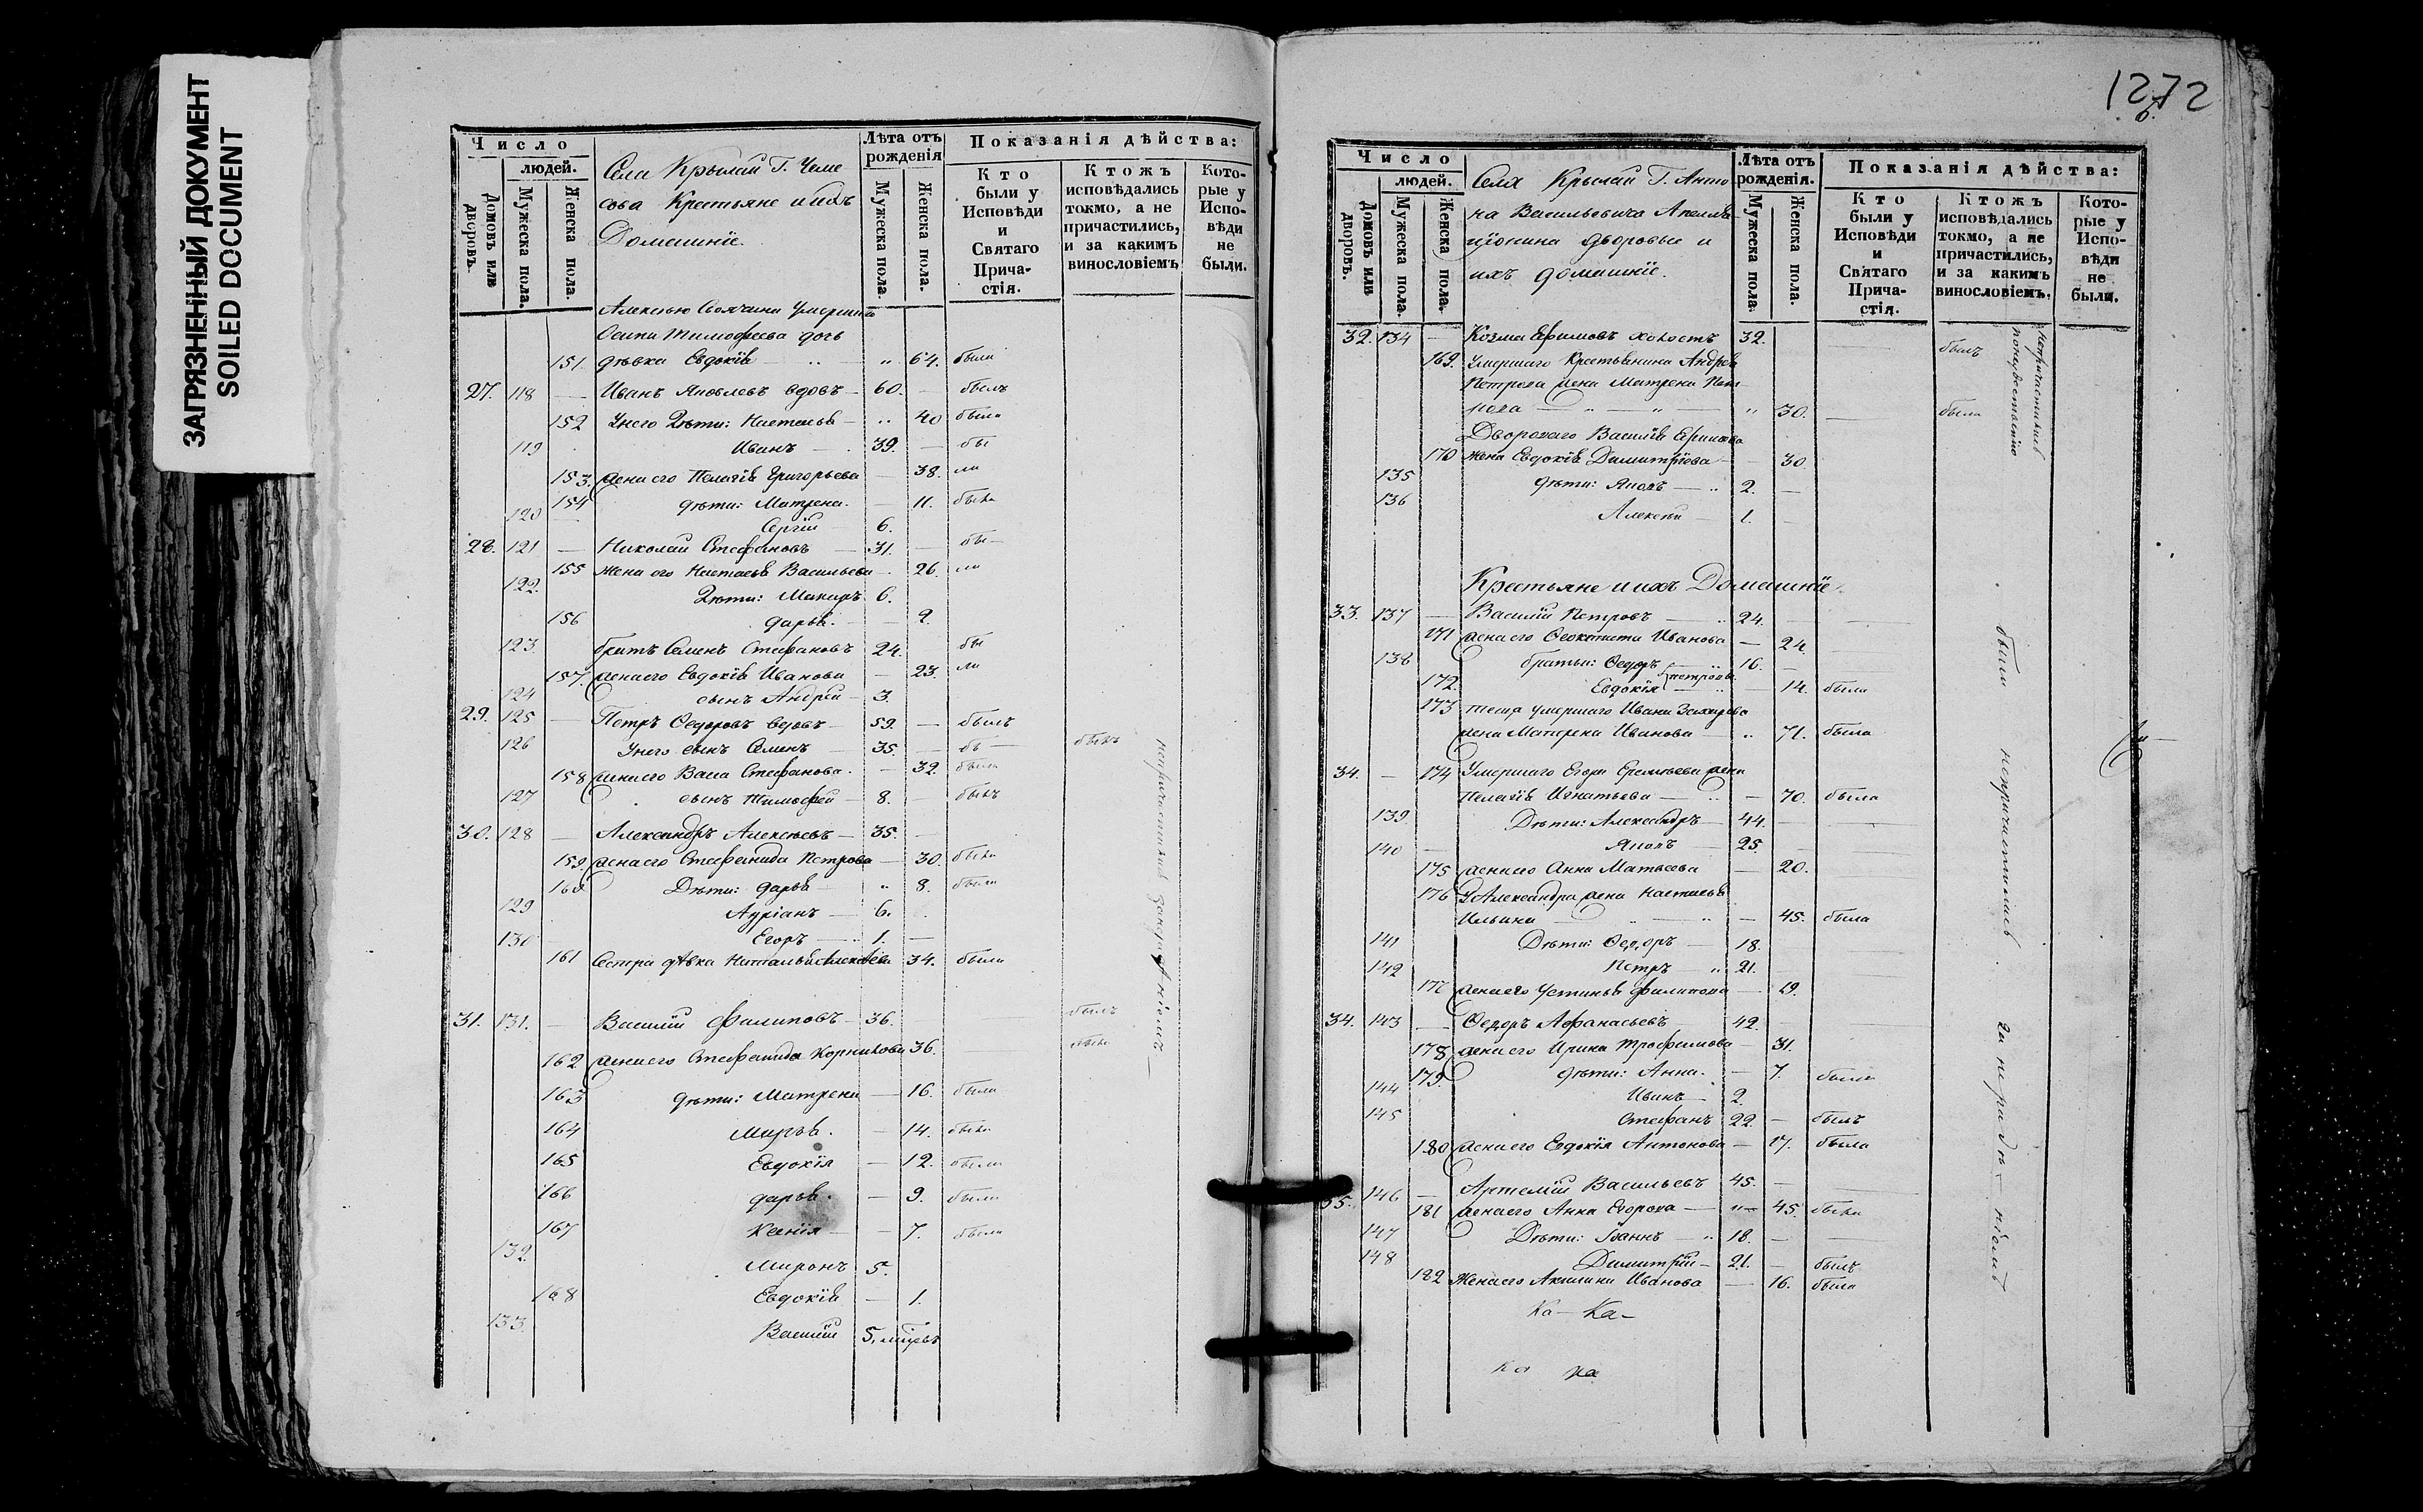 ЗАГРЯЗНЕННЫЙ ДОКУМЕНТ
SOILED DOCUMENT
Число
людей.
Домовъ или дворовъ.
Мужеска пола.
Женска пола.
Села Крылай Г. Чеме
сова Крестьяне и ихъ
Домашніе.
Лѣта отъ рожденія
Мужеска пола.
Женска пола.
Показанія дѣйства:
Кто были у Исповѣди и Святаго Прича-стія.
Ктожъ исповѣдались токмо, а не причастились, и за какимъ винословіемъ
Кото-рые у Испо-вѣди не были.
умершаго
Осипа Тимофеева дочь
151 дѣвка Евдокія 64. была
27. 118 Иванъ Яковлевъ вдовъ 60. былъ
152 У него Дѣти: Настасья 40 была
119 Иванъ 39. бы
153. жена его Пелагія Григорьева 38. ли
154 дѣти: Матрена 11. была
120 Сергій 6.
28. 121 Николай Стефановъ 31. бы
155 жена его Настасья Васильева 26. ли
122. Дѣти: Макаръ 6.
156 дарья 2.
123. братъ Семенъ Стефановъ 24. бы
157. жена его Евдокія Иванова 23. ли
124 сынъ Андрей 3.
29. 125 Петръ Федоровъ вдовъ 59. былъ
126 У него сынъ Семенъ 35. былъ
158 жена его Васа Стефанова 32. была
127 сынъ Тимофей 8. былъ
30. 128 Александръ Алексѣевъ 35.
159. жена его Стефанида Петрова 30. была
160 Дѣти: дарья 8. была
129 Адріанъ 6.
130 Егоръ 1.
161 Сестра дѣвка Наталья Алексѣева 34. была
31. 131. Василій Филиповъ 36. былъ
162 жена его Стефанида Корнилова 36. была
163 дѣти: Матрена 16. была
164 Марья. 14. была
165 Евдокія 12. была
166 дарья. 9. была
167 Ксенія 7. была
132. Миронъ 5.
168 Евдокія 1.
133. Василій 5.
1272
Число
людей.
Домовъ или дворовъ.
Мужеска пола.
Женска пола.
Села Крылай Г. Анто
на Васильевича
дворовые и
ихъ домашніе.
Лѣта отъ рожденія.
Мужеска пола.
Женска пола.
Показанія дѣйства:
Кто были у Исповѣди и Святаго Прича-стія.
Ктожъ исповѣдались токмо, а не причастились, и за какимъ винословіемъ.
Кото-рые у Испо-вѣди не были.
32. 134 Козма Ефимовъ холостъ 32. былъ
169. Умершаго Крестьянина Андрея
Петрова жена Матрена
30. была
Двороваго Василія Ефимова
170 жена Евдокія Димитріева 30.
135 дѣти: Яковъ 2.
136 Алексѣй 1.
Крестьяне и ихъ Домашніе
33. 137 Василій Петровъ 24.
171 жена его Феоктиста Иванова 24.
138 братьи: Федоръ петровы 16.
172. Евдокія 14. была
173 теща умершаго Ивана Захарова
жена Матрена Иванова 71. была
34. 174 Умершаго Егора жена
Пелагія Игнатьева 70. была
139 Дѣти: Александръ 44.
140 Яковъ 25.
175 жена его Анна Матвеева 20.
176 У Александра жена Настасья
Ильина 45. была
141 Дѣти: Федоръ 18.
142 Петръ 21.
177 жена его Устинья Филипова 19.
34. 143 Федоръ Афанасьевъ 42.
178 жена его Ирина Трофимова 31.
179. дѣти: Анна. 7. была
144 Иванъ 2.
145 Стефанъ 22. былъ
180 жена его Евдокія Антонова 17. была
35. 146 Артемій Васильевъ 45.
181 жена его Анна Егорова 45. была
147 Дѣти: Іоаннъ 18.
148 Димитрій 21. былъ
182 Жена его Акилина Иванова 16. была
Ка - Ка -
ка ка